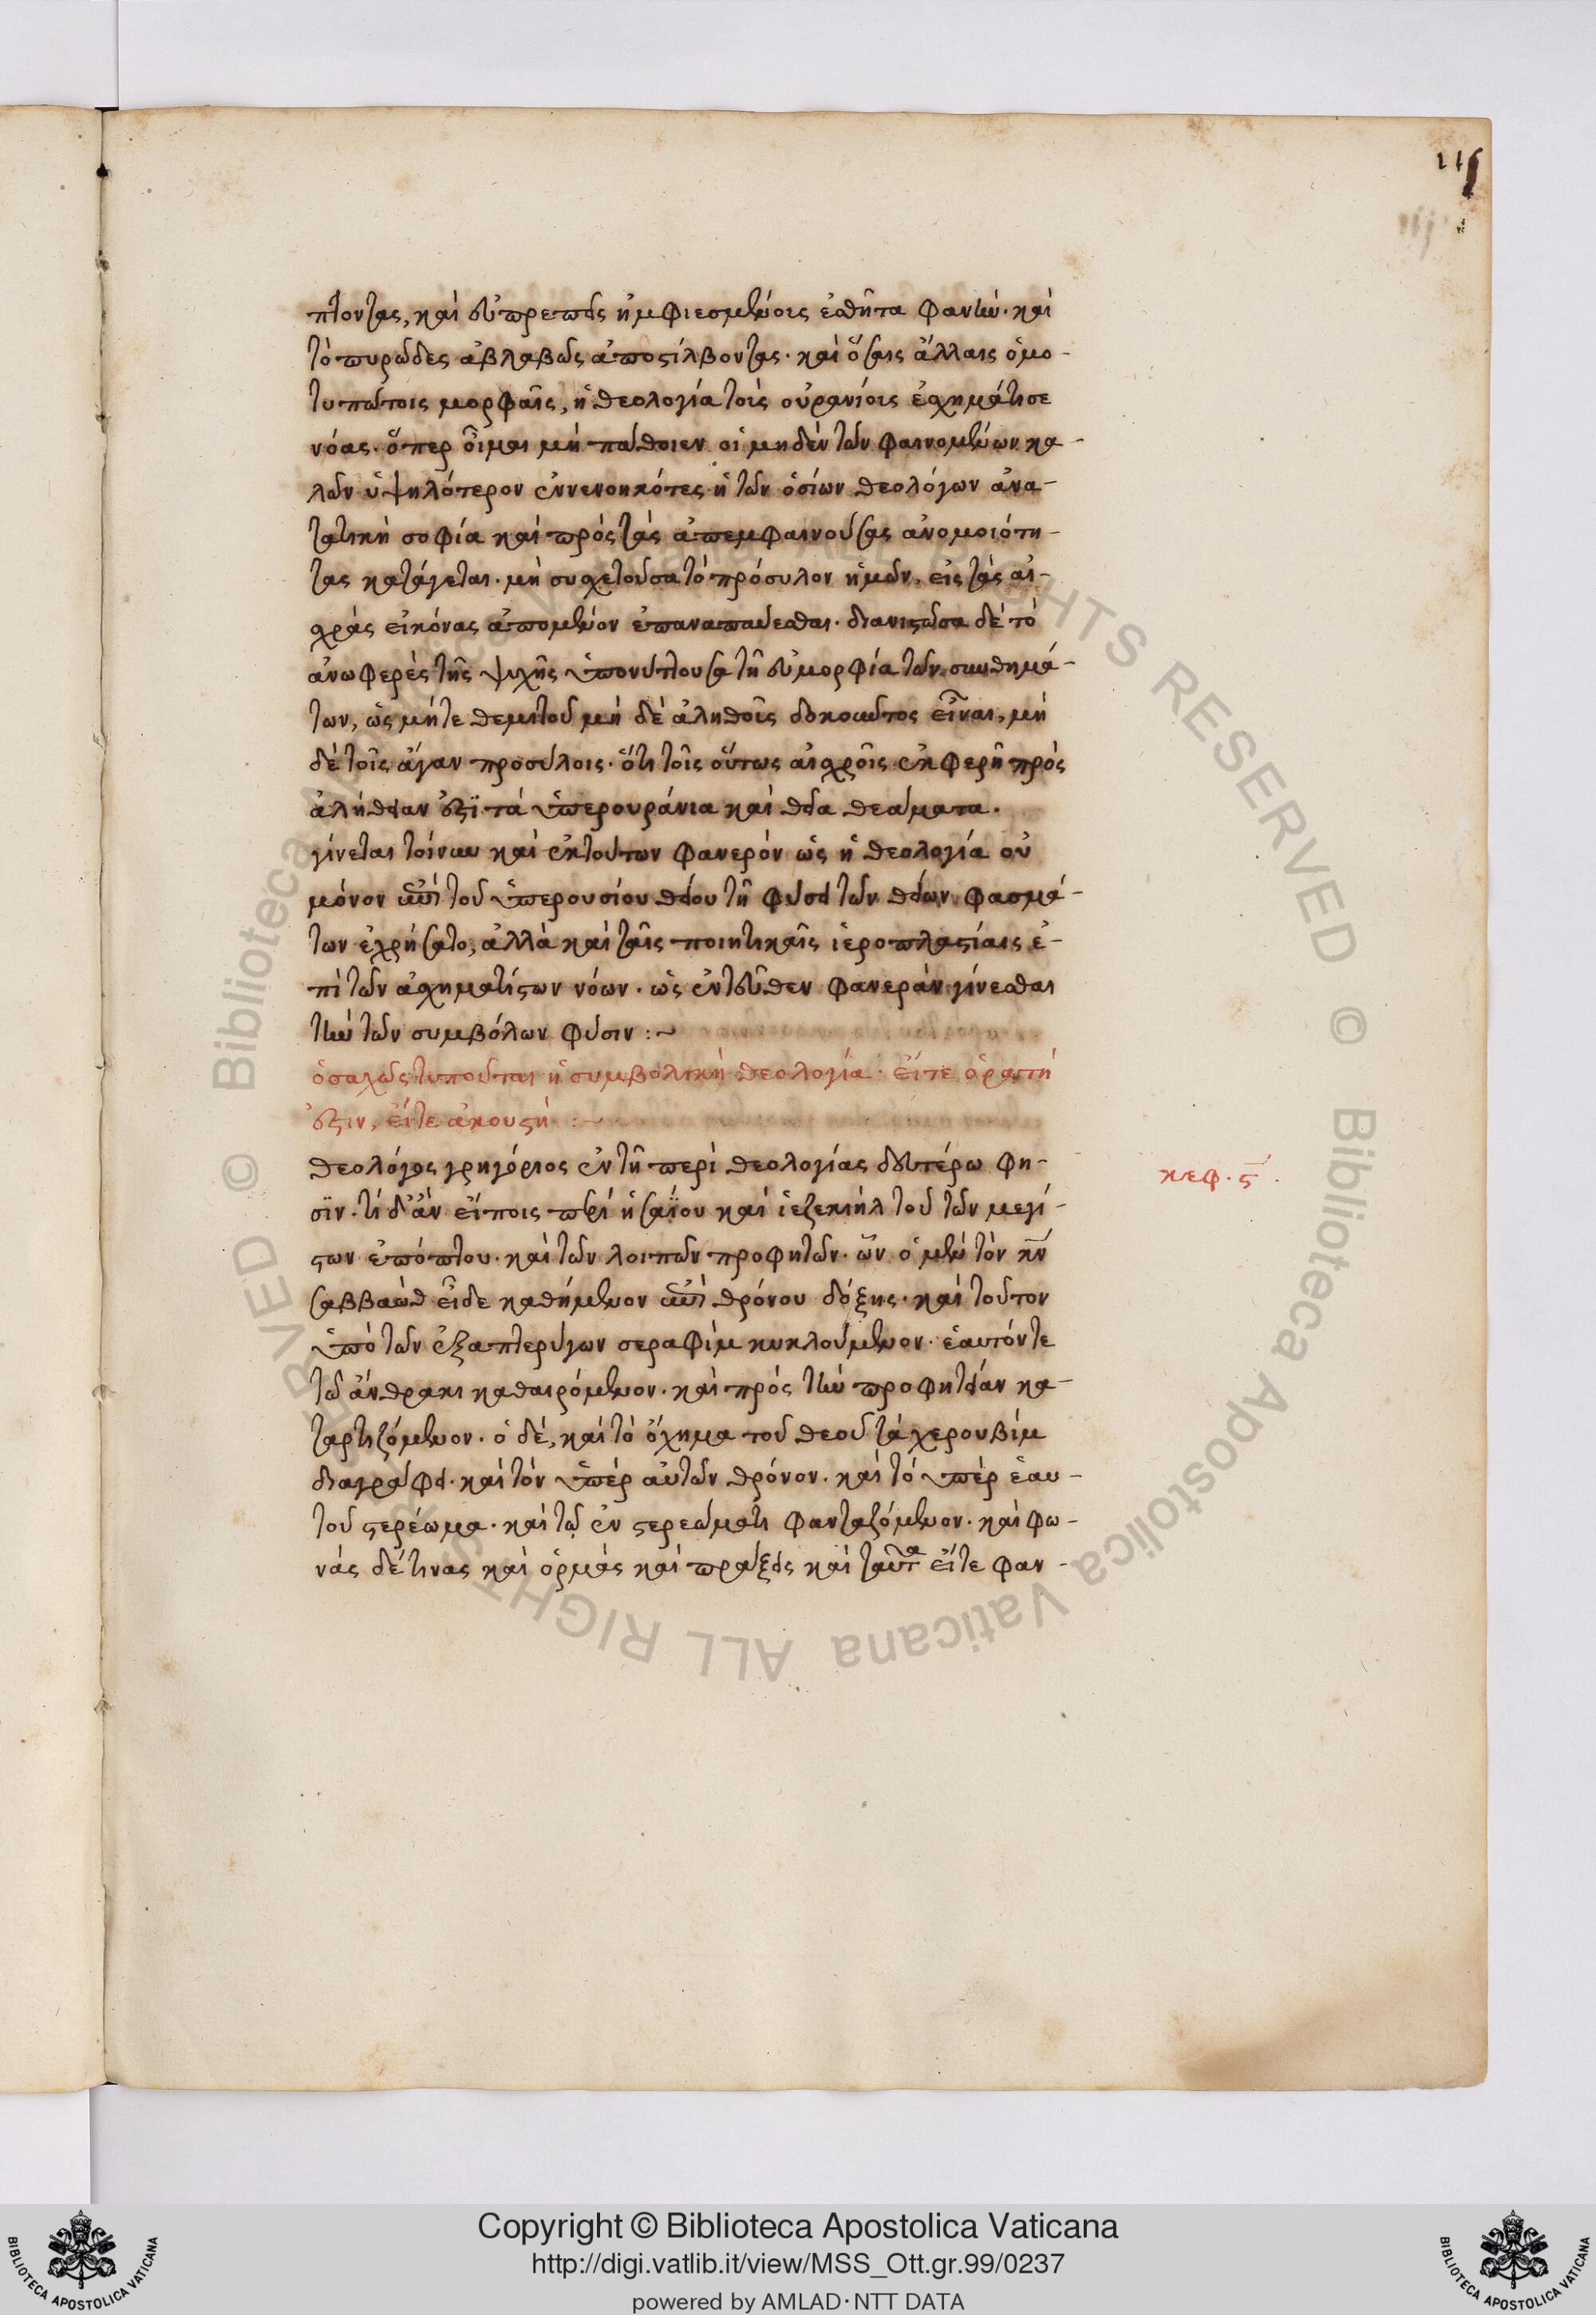 πτοντας, καὶ εὐπρεπεῖς ἠμφιεσμένοις ἐσθῆτα φανὴν· καὶ
τὸ πυρῶδες ἀβλαβῶς ἀποστίλβοντας· καὶ ὅσαις ἄλλαις ὁμο-
τυπώτοις μορφαῖς, ἡ θεολογία τοὶς οὐρανίοις ἐσχημάτισε
νόας· ὅπερ οἶμαι μὴ πάθοιεν οἱ μηδὲν τῶν φαινομένων κα-
λῶν ὑψηλότερον ἐννενοηκότες ἡ τῶν ὁσίων θεολόγων ἀνα-
τατικὴ σοφία καὶ πρὸς τὰς ἀπεμφαινούσας ἀνομοιότη-
τας κατάγεται· μὴ συχετοῦσα τὸ πρόσυλον ἡμῶν, εἰς τὰς αἰ-
σχρὰς εἰκόνας ἀπομένον ἐπαναπαύεσθαι· διανιστῶσα δὲ τὸ
ἀνωφερὲς τῆς ψυχῆς ὑπονύττουσα τῆ εὐμορφία τῶν συνθημά-
των, ὡς μήτε θεμιτοῦ μὴ δὲ ἀληθοῖς δοκοῦντος εἶναι, μὴ
δὲ τοῖς ἄγαν προσύλοις· ὅτι τοῖς οὕτως αἰσχροῖς ἐκφερῆ πρὸς
ἀλήθειαν ἐστὶ τὰ ὑπερουράνια καὶ θεῖα θεάματα.
γίνεται τοίνυν καὶ ἐκ τούτων φανερὸν ὡς ἡ θεολογία οὐ
μόνον ἐπὶ τοῦ ὑπερουσίου θείου τῆ φύσει τῶν θείων φασμά-
των ἐχρήσατο, ἀλλὰ καὶ ταῖς ποιητικαῖς ἱεροπλαστίαις ἐ-
πὶ τῶν ἀσχηματίστων νόων· ὡς ἐντεῦθεν φανερὰν γίνεσθαι
τὴν τῶν συμβόλων φύσιν :~
ὁσαχῶς τυποῦται ἡ συμβολικὴ θεολογία· εἴτε ὁρατή
ἐστιν, εἴτε ἀκουστή :~
θεολόγος γρηγόριος ἐν τῆ περὶ θεολογίας δευτέρω φη-
σὶν· τί δ' ἂν εἴποις περὶ ἡσαΐου καὶ ἰεζεκιὴλ τοῦ τῶν μεγί-
στων ἐπόπτου· καὶ τῶν λοιπῶν προφητῶν· ὧν ὁ μὲν τὸν κν
σαββαὼθ εἶδε καθήμενον ἐπὶ θρόνου δόξης· καὶ τοῦτον
ὑπὸ τῶν ἐξαπτερύγων σεραφὶμ κυκλούμενον· ἑαυτόν τε
τῶ ἄνθρακι καθαιρόμενον· καὶ πρὸς τὴν προφητείαν κα-
ταρτιζόμενον· ὁ δέ, καὶ τὸ ὄχημα τοῦ θεοῦ τὰ χερουβὶμ
διαγράφει· καὶ τὸν ὑπὲρ αὐτῶν θρόνον· καὶ τὸ ὑπὲρ ἑαυ-
τοῦ στερέωμα· καὶ τῶ ἐν στερεώματι φανταζόμενον· καὶ φω-
νὰς δέ τινας καὶ ὁρμὰς καὶ πράξεις καὶ ταῦτα εἴτε φαν-
κεφ. ϛ´.
Copyright © Biblioteca Apostolica Vaticana
http://digi.vatlib.it/view/MSS_Ott.gr.99/0237
powered by AMLAD·NTT DATA